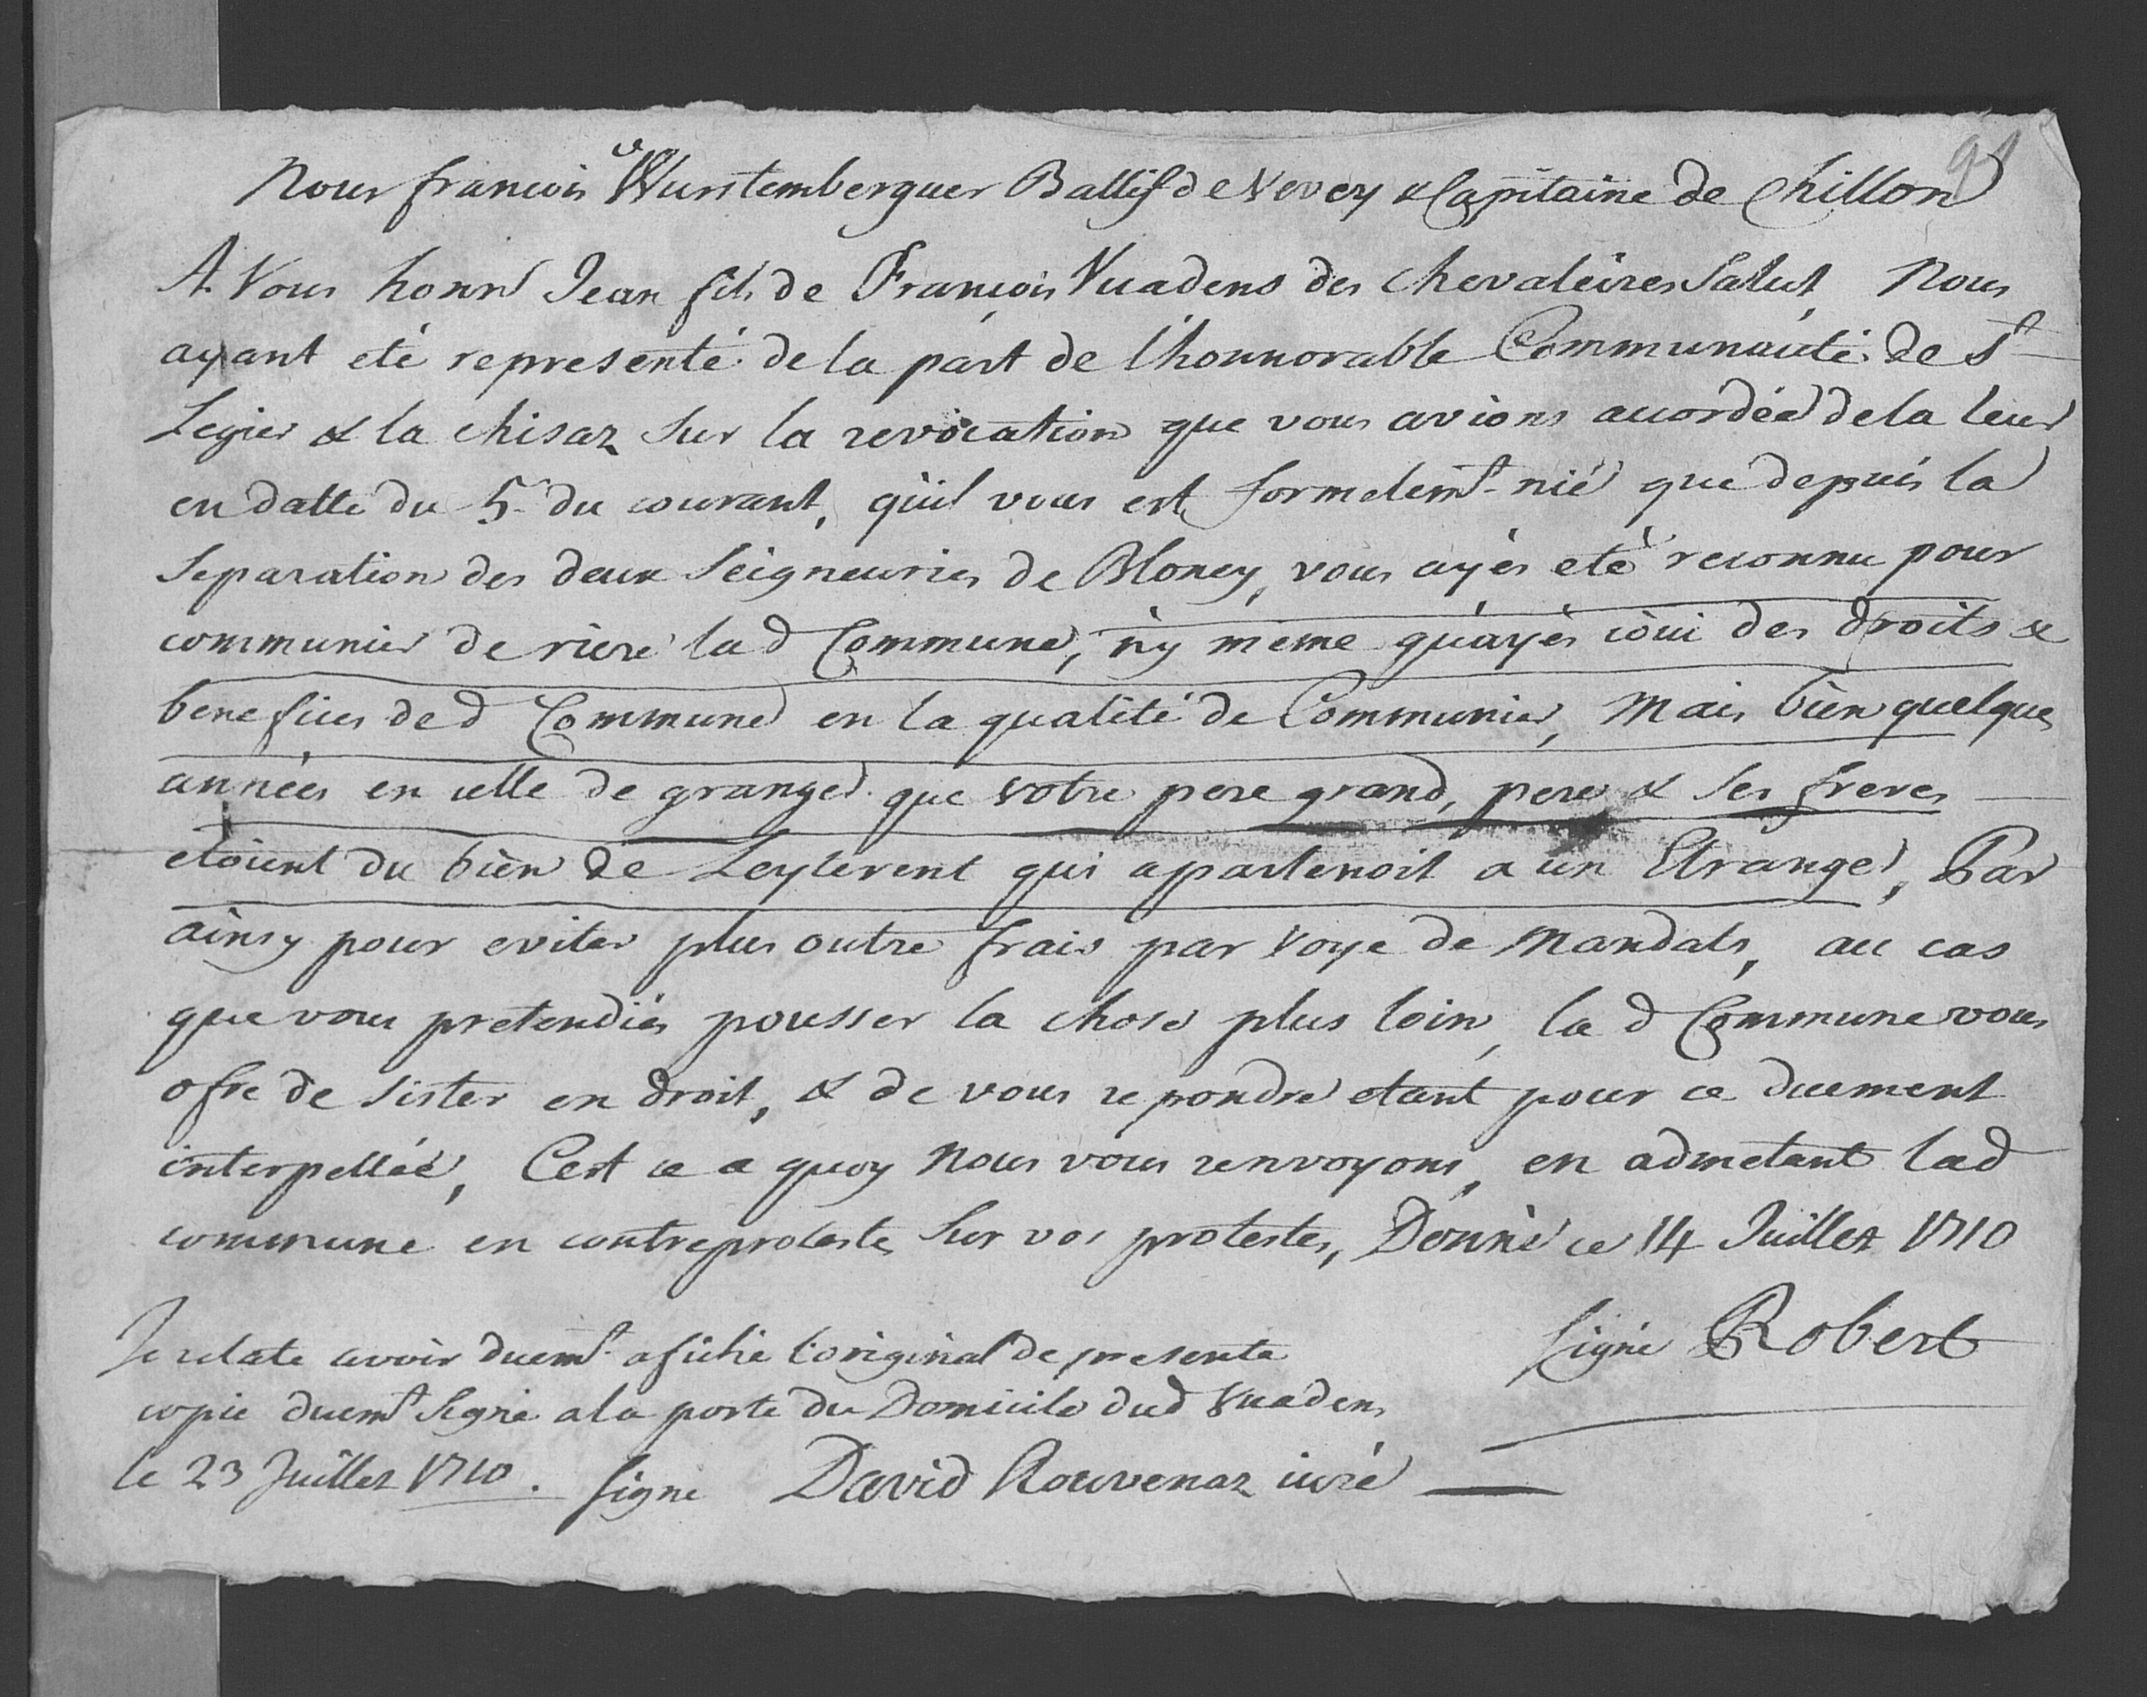 91
Nous françois Wurstemberguer Ballif de Vevey & Capitaine de Chillon
A Vous honn Jean fils de François Vuadens des Chevaleires Salut Nous
ayant eté representé de la part de l'honnorable Communauté de St
Legier & la chisaz sur la revocation que vous avions accordée de la leur
en datte du 5 du courant, qu'il vous est formelemt nié que depuis la
separation des deux Seigneuries de Bloney, vous ayés eté reconnu pour
communier de riere lad Commune, n'y meme qu'ayés ioui des droits &
benefices de d Commune en la qualité de Communier, Mais bien quelques
années en celle de granger que votre pere grand, pere & ses freres
etoient du bien de Leyterent qui apartenoit a un Etranger, Par
ainsy pour eviter plus outre frais par voye de Mandats, au cas
que vous pretendiés pousser la chose plus loin, la d Commune vous
ofre de sister en droit, & de vous repondre etant pour ce duement
interpellée, C'est ce a quoy Nous vous renvoyons, en admetant lad
commune en contreproteste sur vos protestes, Donné ce 14 Juillet 1710
Signé Robert
Je relate avoir duemt afiché l'original de presente
copie duemt signé a la porte du Domicile dud Vuadens
le 23 Juillet 1710. signé David Rouvenaz iuré